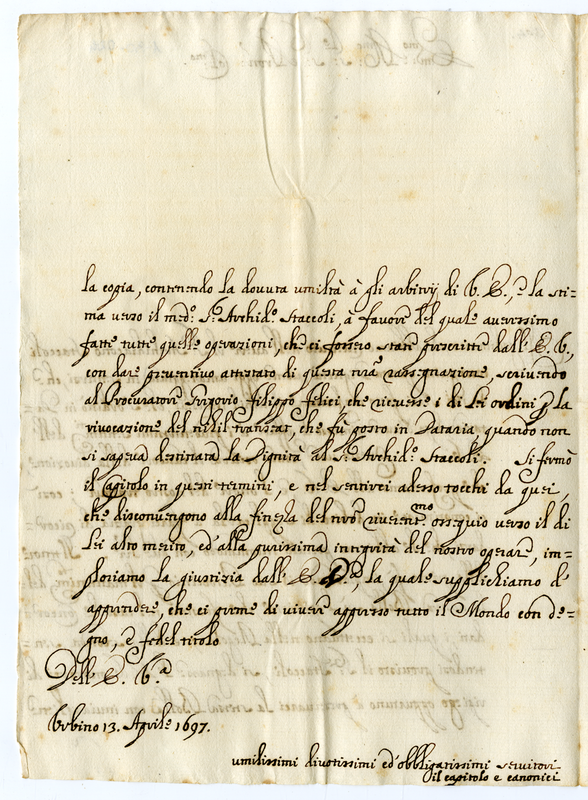 la copia, contenendo la dovuta umiltà à gli arbitrij di V. E., e la sti=
ma verso il med.º S.r Archid.º Staccoli, à favor del quale averessimo
fatte tutte quelle operazioni, che ci fossero state prescritte dall' E. V.,
con dare preventivo attestato di questa nr̃a rassegnazione, scrivendo
al Procuratore Filippo Felici, che ricevesse i di Lei ordini p la
rivocazione del nihil transeat, che fù posto in Dataria, quando non
si sapeva destinata la Dignità al S.r Archid.º Staccoli. Si fermò
il Capitolo in questi termini, e nel sentirci adesso tocchi da quei,
che disconvengono alla finezza del nr̃o riverent.mo ossequio verso il di
Lei alto merito, ed' alla purissima integrità del nostro operare, im=
ploriamo la giustizia dall' E. , la quale supplichiamo d'
apprendere, che ci preme di vivere appresso tutto il Mondo con de=
gno, e fedel titolo
Dell' E. V.a
Urbino 13. Aprile 1697.
umilissimi divotissimi ed' obbligatissimi servitori
il capitolo e canonici